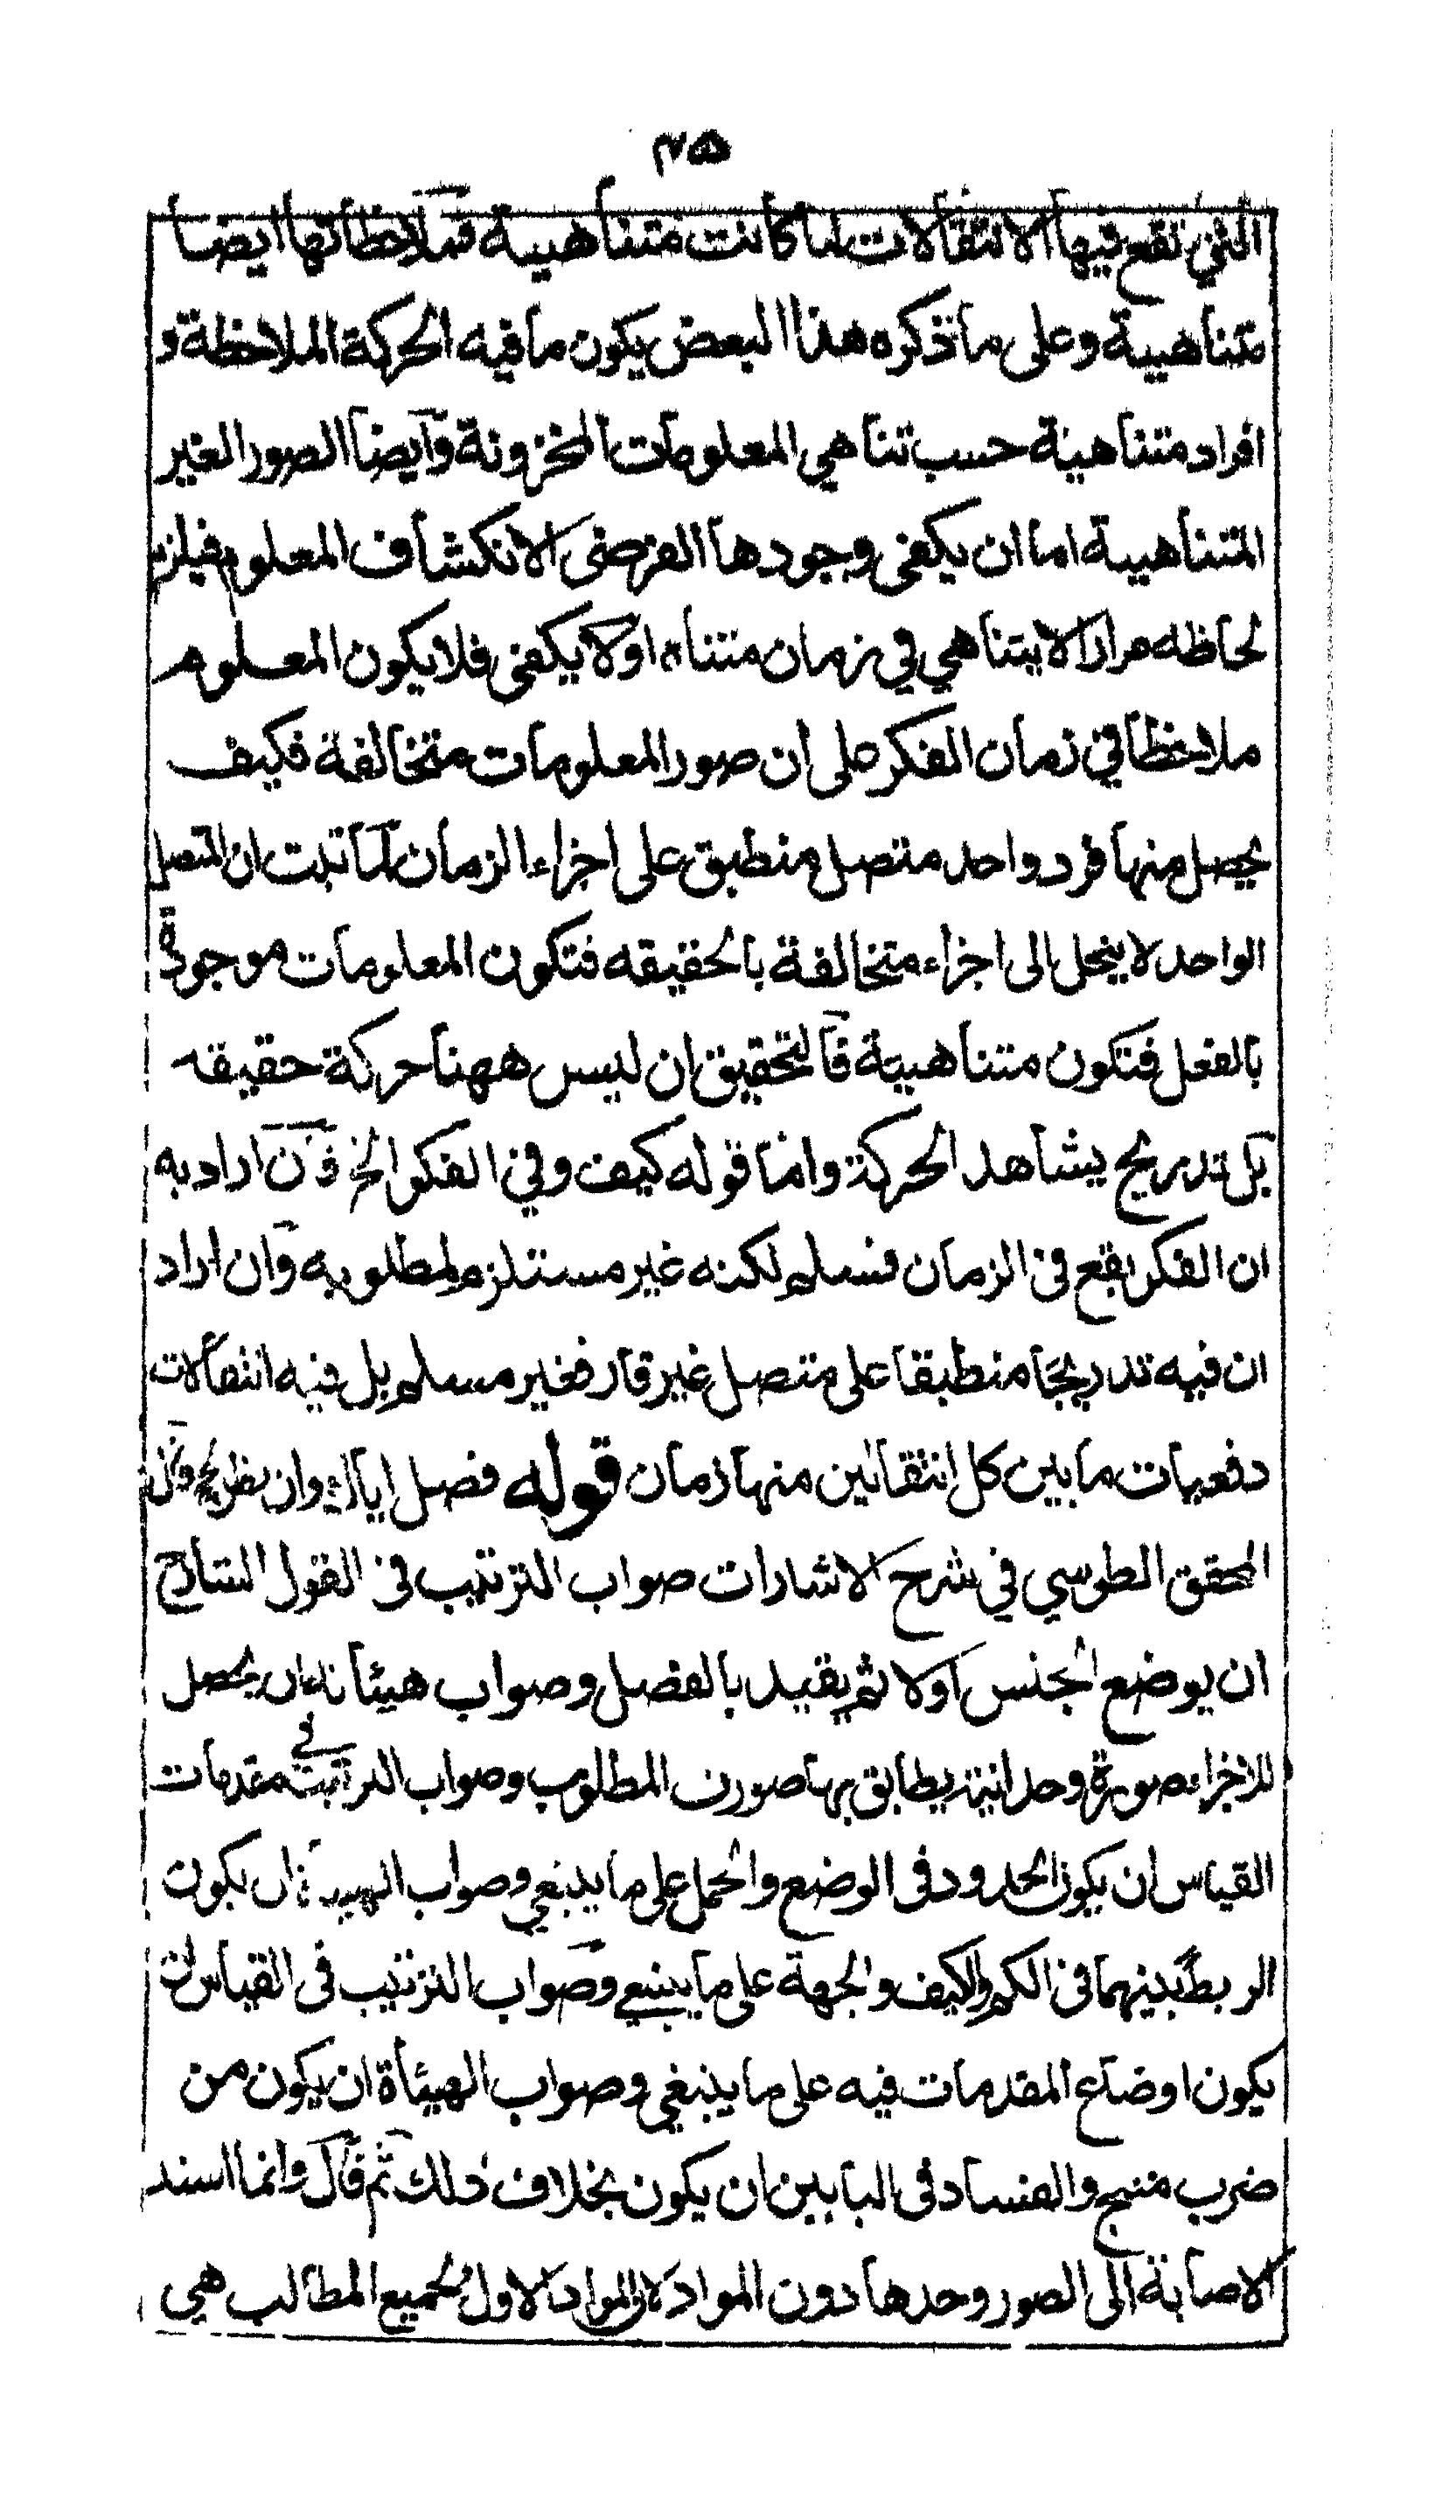 ٣٥
التي تقع فيها الانتقالات لما كانت متناهية فملاحظاتها ايضا
متناهية وعلى ما ذكره هذا البعض يكون ما فيه الحركة الملاحظة و
افراد متناهية حسب تناهي المعلومات المخزونة وايضا الصور الغير
المتناهية اما ان يكفى وجودها الفرضى لانكشاف المعلوم فيلزم
لحاظه مرارا لا يتناهي في زمان متناه اولا يكفى فلا يكون المعلوم
ملاحظا في زمان الفكر على ان صور المعلومات متخالفة فكيف
يحصل منها فرد واحد متصل منطبق على اجزاء الزمان لما ثبت ان المتصل
الواحد لا ينحل الى اجزاء متخالفة بالحقيقه فتكون المعلومات موجودة
بالفعل فتكون متناهية فالتحقيق ان ليس ههنا حركة حقيقه
بل تدريج يشاهد الحركة واما قوله كيف وفي الفكر الخ فان اراد به
ان الفكر يقع في الزمان فمسلم لكنه غير مستلزم لمطلوبه وان اراد
ان فيه تدريجا منطبقا على متصل غير قار فغير مسلم بل فيه انتقالات
دفعيات ما بين كل انتقالين منها زمان قوله فصل
المحقق الطوسي في شرح الاشارات صواب الترتيب في القول الشارح
ان يوضع الجنس اولا ثم يقيد بالفصل وصواب هيئاته ان يحصل
للاجزاء صورة وحدانية يطابق بها صورت المطلوب وصواب الترتيب في مقدمات
القياس ان يكون الحدود في الوضع والحمل على ما ينبغي وصواب الهيئة ان يكون
الربط بينهما في الكم والكيف والجهة على ما ينبغي وصواب الترتيب في القياس ان
يكون اوضاع المقدمات فيه على ما ينبغي وصواب الهيئاة ان يكون من
ضرب منتج والفساد في البابين ان يكون بخلاف ذلك ثم قال وانما اسند
الاصابة الى الصور وحدها دون المواد لان المواد الاول لجميع المطالب هي